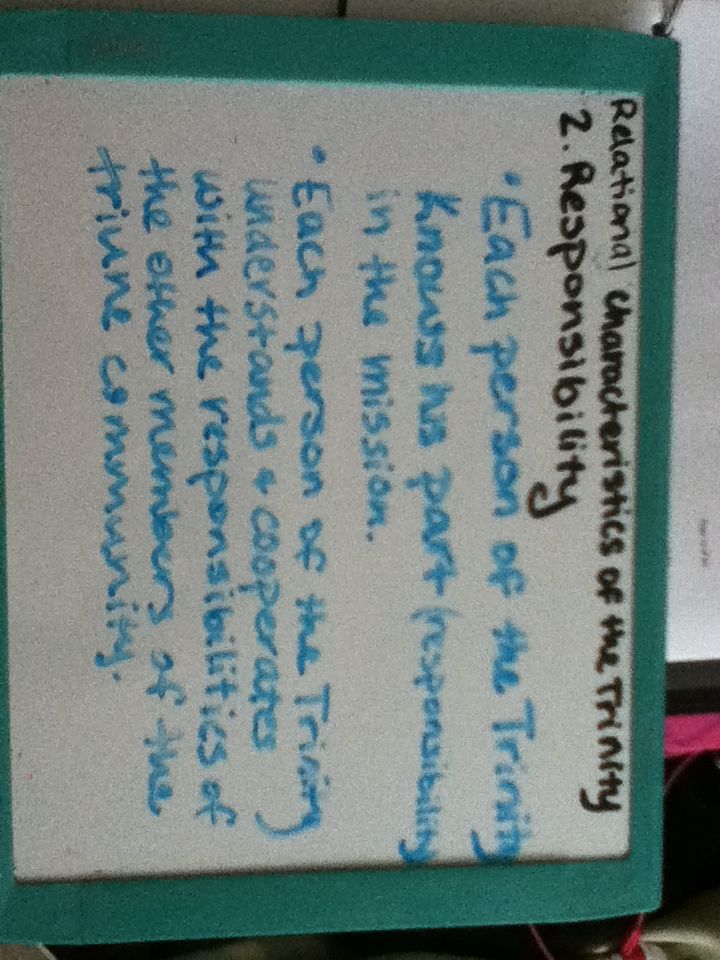 Relational Characteristics of the Trinity
2. Responsibility
• Each person of the Trinity
Knows his part/responsibility
in the mission.
• Each person of the Trinity
understands & cooperates
with the responsibilities of
the other members of the
triune community.